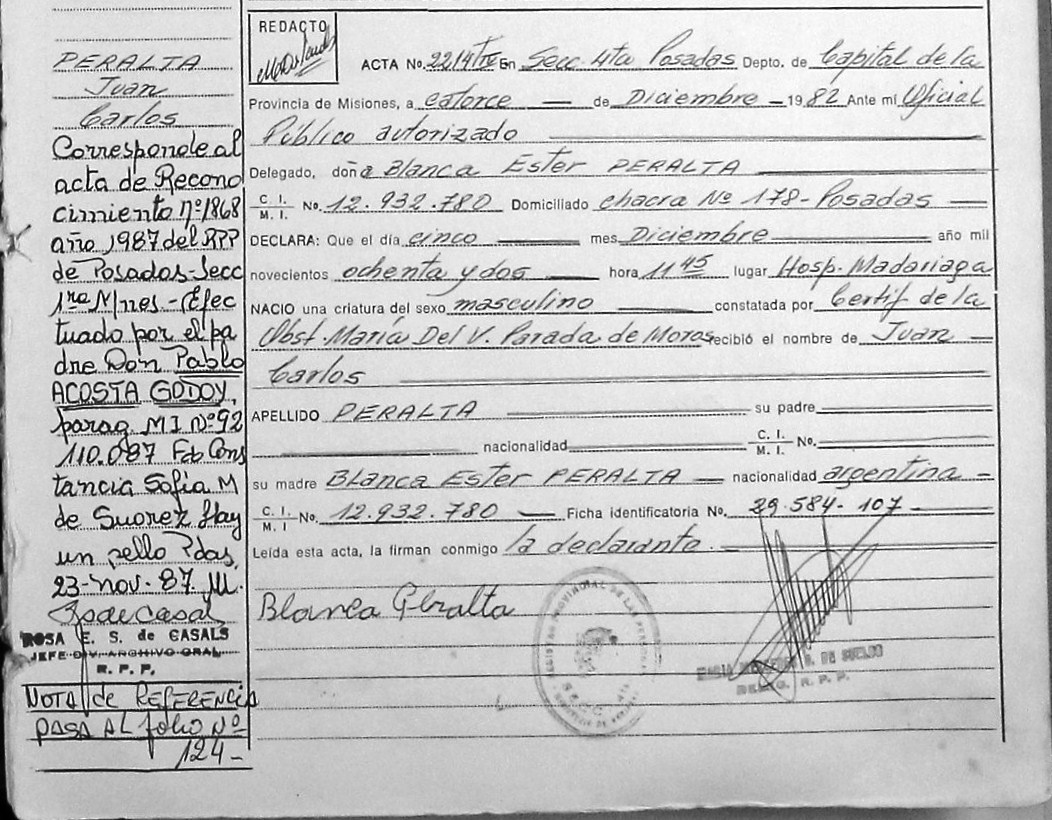 PERALTA
Juan
Carlos
Corresponde al
acta de Recono
cimiento nº 1868
año 1987 del RPP
de Posadas-Secc
1ra Mnes-Efec
tuado por el pa
dre Don Pablo
ACOSTA GODOY,
parag MI Nº 92
110.087 Fdo Cons
tancia Sofia M
de Suarez Hay
un sello Pdas.
23-nov.-87.
ROSA E. S. de CASALS
JEFE DIV. ARCHIVO GRAL.
R. P. P.
NOTA de REFERENCIA
PASA AL folio Nº
124-
REDACTO
ACTA No. 2214 En Secc. 4ta Posadas Depto. de Capital de la
Provincia de Misiones, a catorce de Diciembre 1982 Ante mi Oficial
Publico autorizado
Delegado, doña Blanca Ester PERALTA
C. I. M. I. No. 12.932.780 Domiciliado chacra Nº 178-Posadas
DECLARA: Que el día cinco mes Diciembre año mil
novecientos ochenta y dos hora 11 45 lugar Hosp. Madariaga
NACIO una criatura del sexo masculino constatada por Certif. de la
Obst. María Del V. Parada de Moras recibió el nombre de Juan
Carlos
APELLIDO PERALTA su padre
nacionalidad C. I. M. I. No.
su madre Blanca Ester PERALTA nacionalidad argentina
C. I. M. I No. 12.932.780 Ficha identificatoria No. 29.584-107
Leída esta acta, la firman conmigo la declarante.
Blanca Peralta